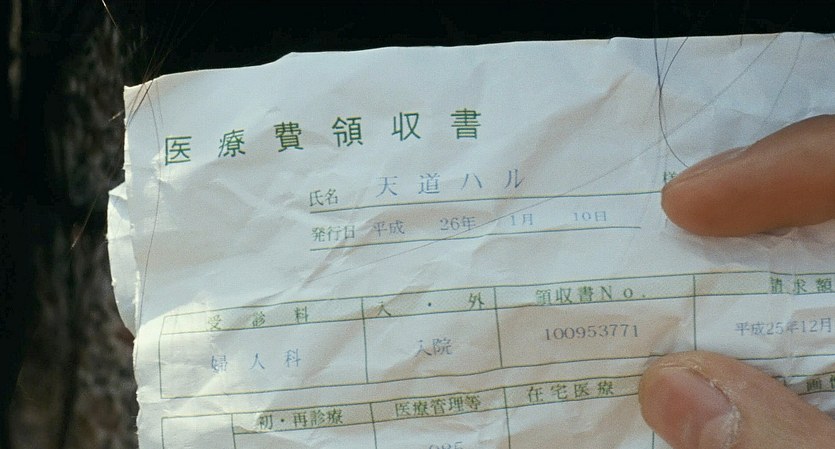 医療費領収書
氏名 天道ハル 様
発行日 平成 26年 1月 10日
受診料 入・外 領収書No. 請求額
婦人科 入院 100953771 平成25年12月
初・再診療 医療管理等 在宅医療